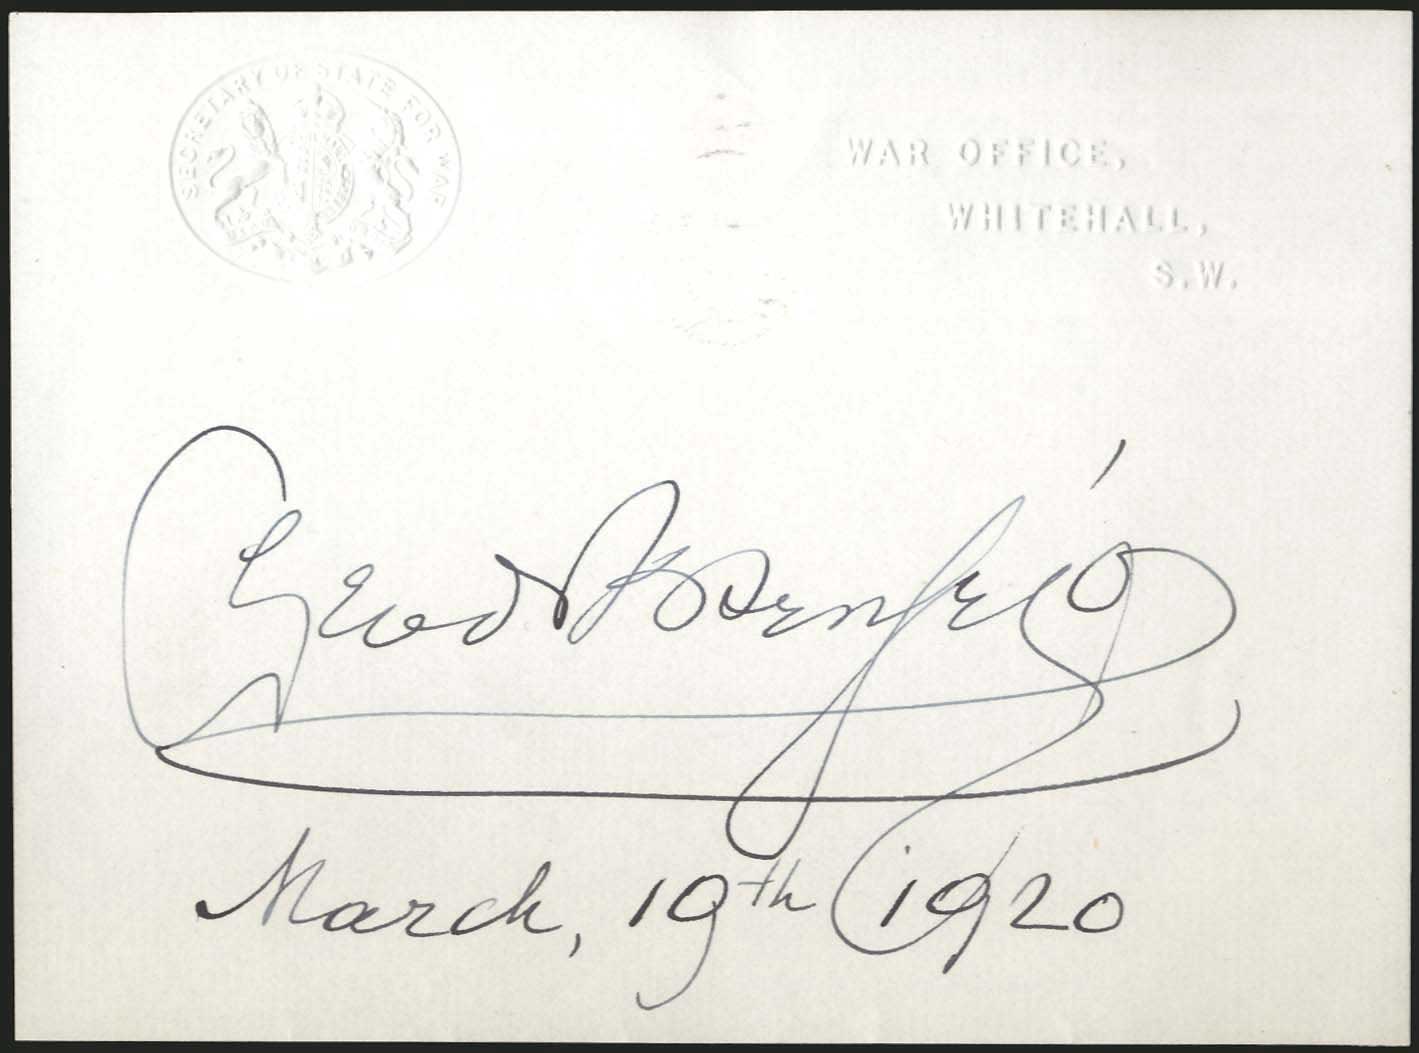 SECRETARY OF STATE FOR WAR
WAR OFFICE,
WHITEHALL,
S.W.
March, 19th 1920